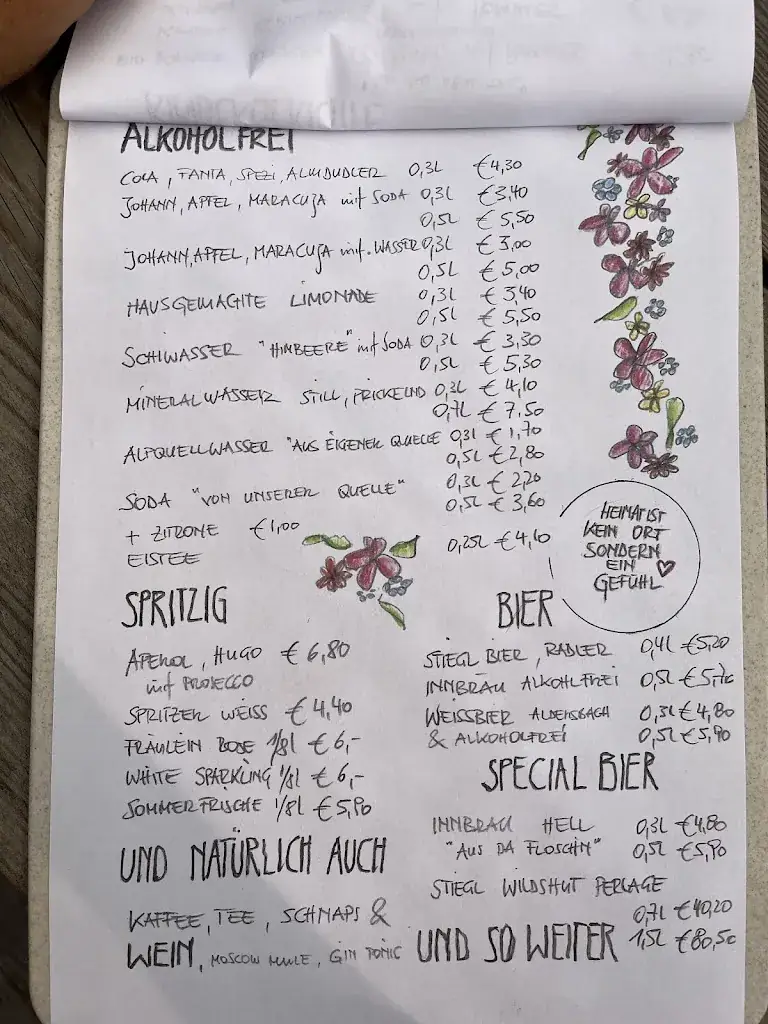 ALKOHOLFREI
COLA, FANTA, SPEZI, ALMDUDLER 0,3L €4,30
JOHANN, APFEL, MARACUJA mit SODA 0,3L €3,40
0,5L €5,50
JOHANN, APFEL, MARACUJA mit. WASSER 0,3L €3,00
0,5L €5,00
HAUSGEMACHTE LIMONADE 0,3L €3,40
0,5L €5,50
SCHIWASSER "HIMBEERE" mit SODA 0,3L €3,30
0,5L €5,30
MINERALWASSER STILL, PRICKELND 0,3L €4,10
0,7L €7,50
ALPQUELLWASSER "AUS EIGENER QUELLE 0,3l €1,70
0,5L €2,80
SODA "VON UNSERER QUELLE" 0,3L €2,20
0,5L €3,60
+ ZITRONE €1,00
EISTEE 0,25L €4,10
HEIMAT IST
KEIN ORT
SONDERN
EIN
GEFÜHL
SPRITZIG
APEROL, HUGO €6,80
mit PROSECCO
SPRITZER WEISS €4,40
FRÄULEIN ROSE 1/8l €6,-
WHITE SPARKLING 1/8l €6,-
SOMMERFRISCHE 1/8l €5,90
UND NATÜRLICH AUCH
KAFFEE, TEE, SCHNAPS &
WEIN, MOSCOW MULE, GIN TONIC
BIER
STIEGL BIER, RADLER 0,4l €5,20
INNBRÄU ALKOHLFREI 0,5L €5,70
WEISSBIER ALDERSBACH 0,3L €4,80
& ALKOHOLFREI 0,5L €5,90
SPECIAL BIER
INNBRÄU HELL 0,3L €4,80
"AUS DA FLOSCHN" 0,5L €5,90
STIEGL WILDSHUT PERLAGE
0,7L €40,20
1,5L €80,50
UND SO WEITER